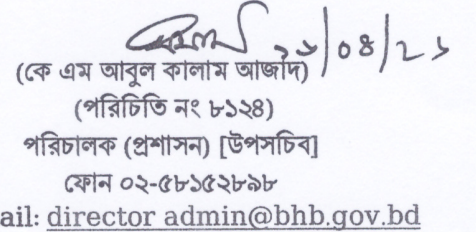 ২৬/০৪/২১
(কে এম আবুল কালাম আজাদ)
(পরিচিতি নং ৮১২৪)
পরিচালক (প্রশাসন) [উপসচিব]
ফোন ০২-৫৮১৫২৮৯৮
ail: director admin@bhb.gov.bd